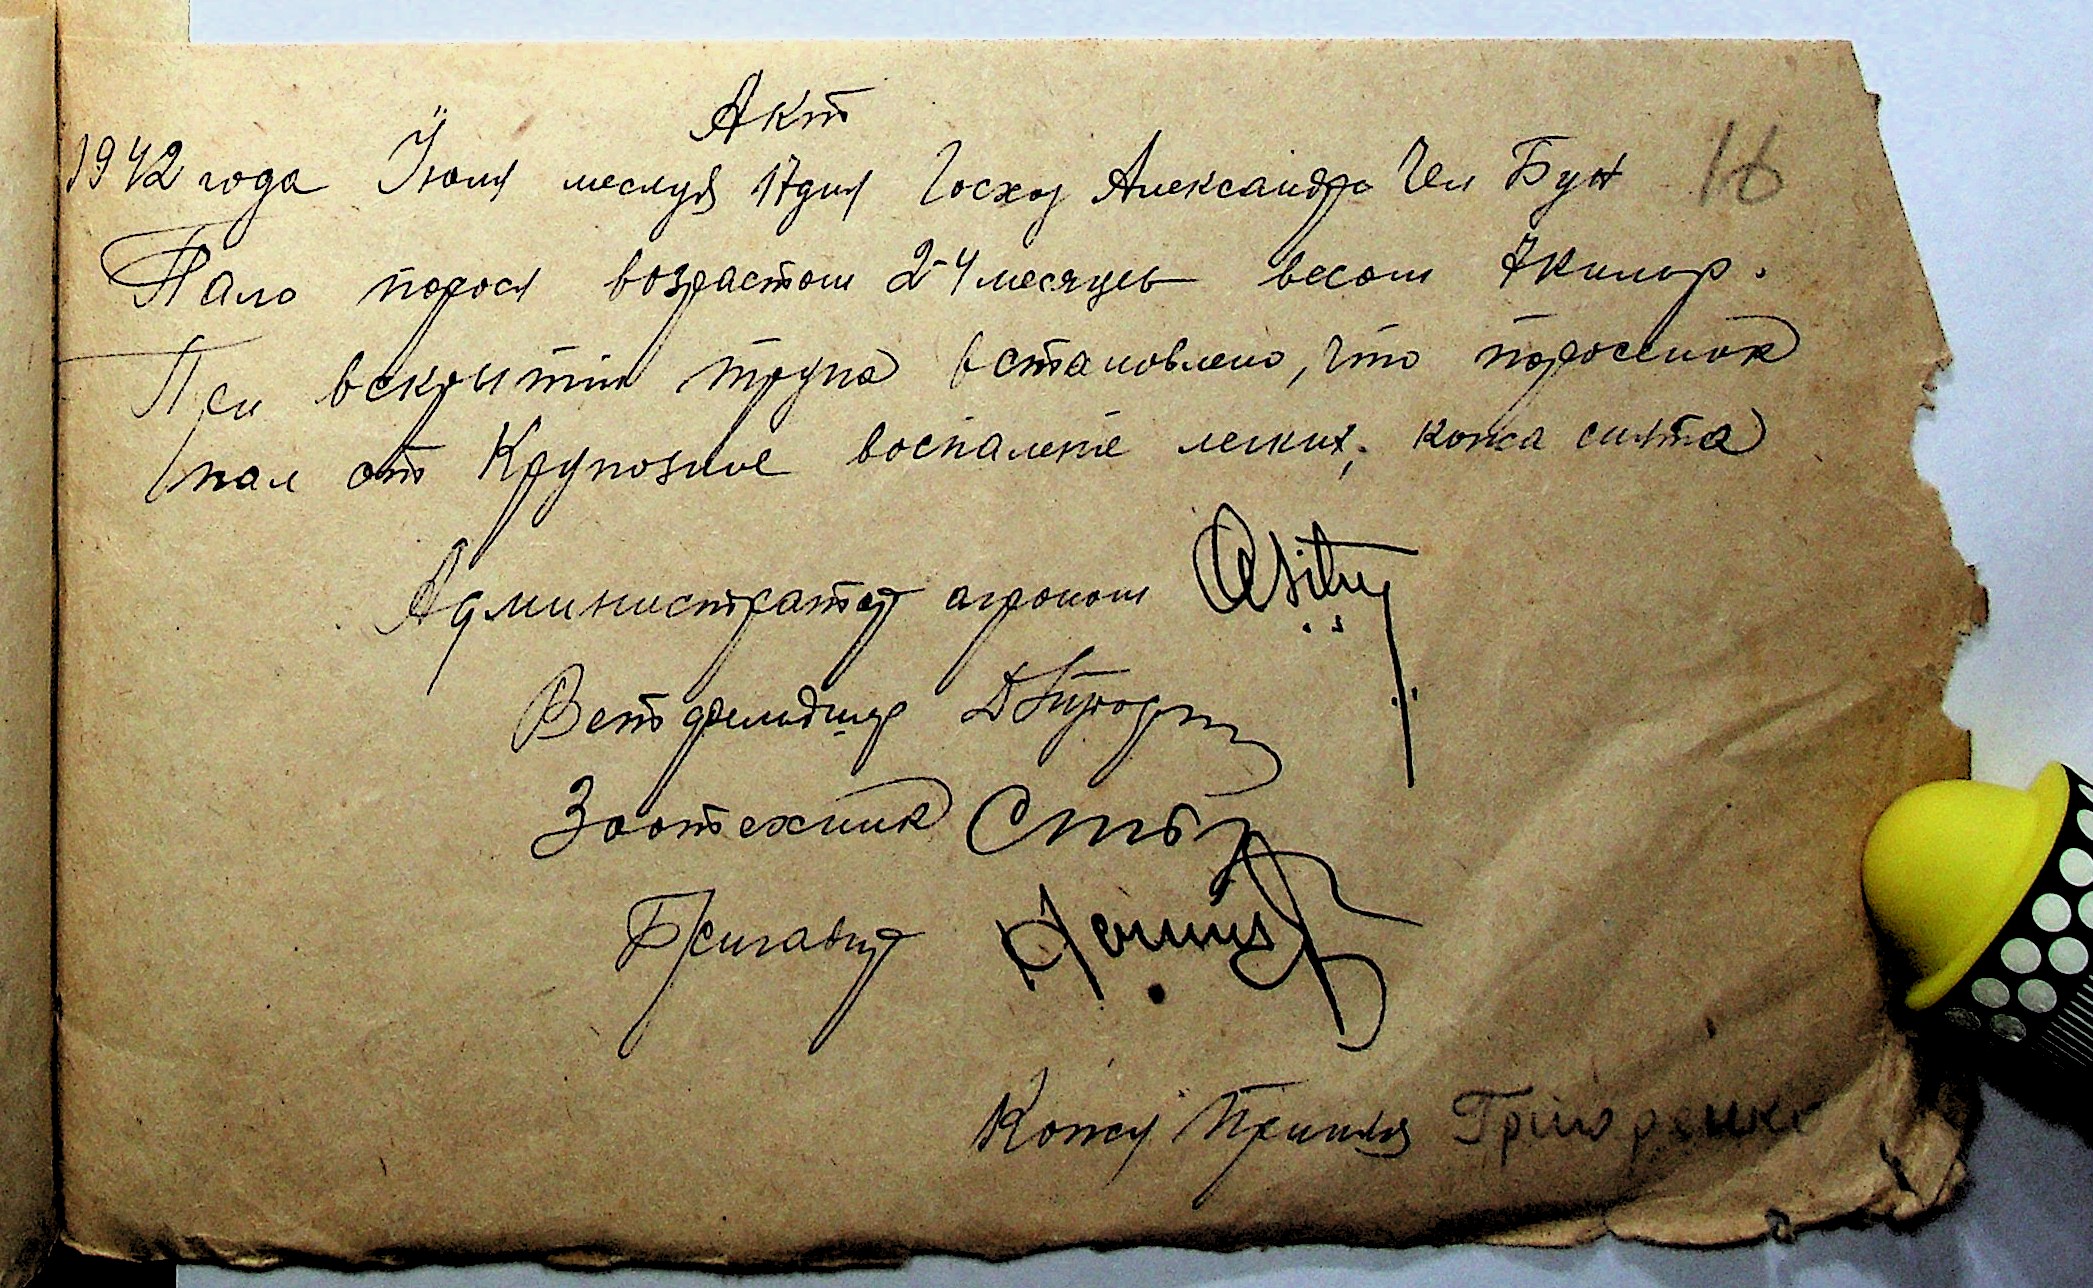 Акт
1942 года Июля месяца 17 дня Госхоз Александру Чел Бун 16
Пало порося возрастом 2-4 месяцев весом 7 килогр.
При вскрытии трупа встановлено, что поросенок
пал от Крупозное воспаление легких, кожа снята
Администратор агроном
Ветфельдшер
Зоотехник
Бригадир
Кожу Принял Григоренко